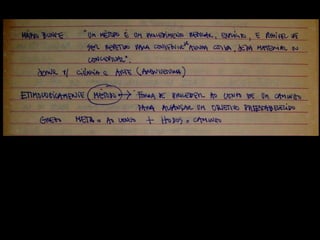 MÁRIO BUNGE "UM MÉTODO É UM PROCEDIMENTO REGULAR, EXPLÍCITO, E POSSÍVEL DE
SER REPETIDO PARA CONSEGUIR ALGUMA COISA, SEJA MATERIAL OU
CONCEITUAL".
SERVE P/ CIÊNCIA E ARTE (ARQUITETURA)
ETIMOLOGICAMENTE MÉTODO → FORMA DE PROCEDER AO LONGO DE UM CAMINHO
PARA ALCANÇAR UM OBJETIVO PREESTABELECIDO
GREGO META = AO LONGO + HODOS = CAMINHO